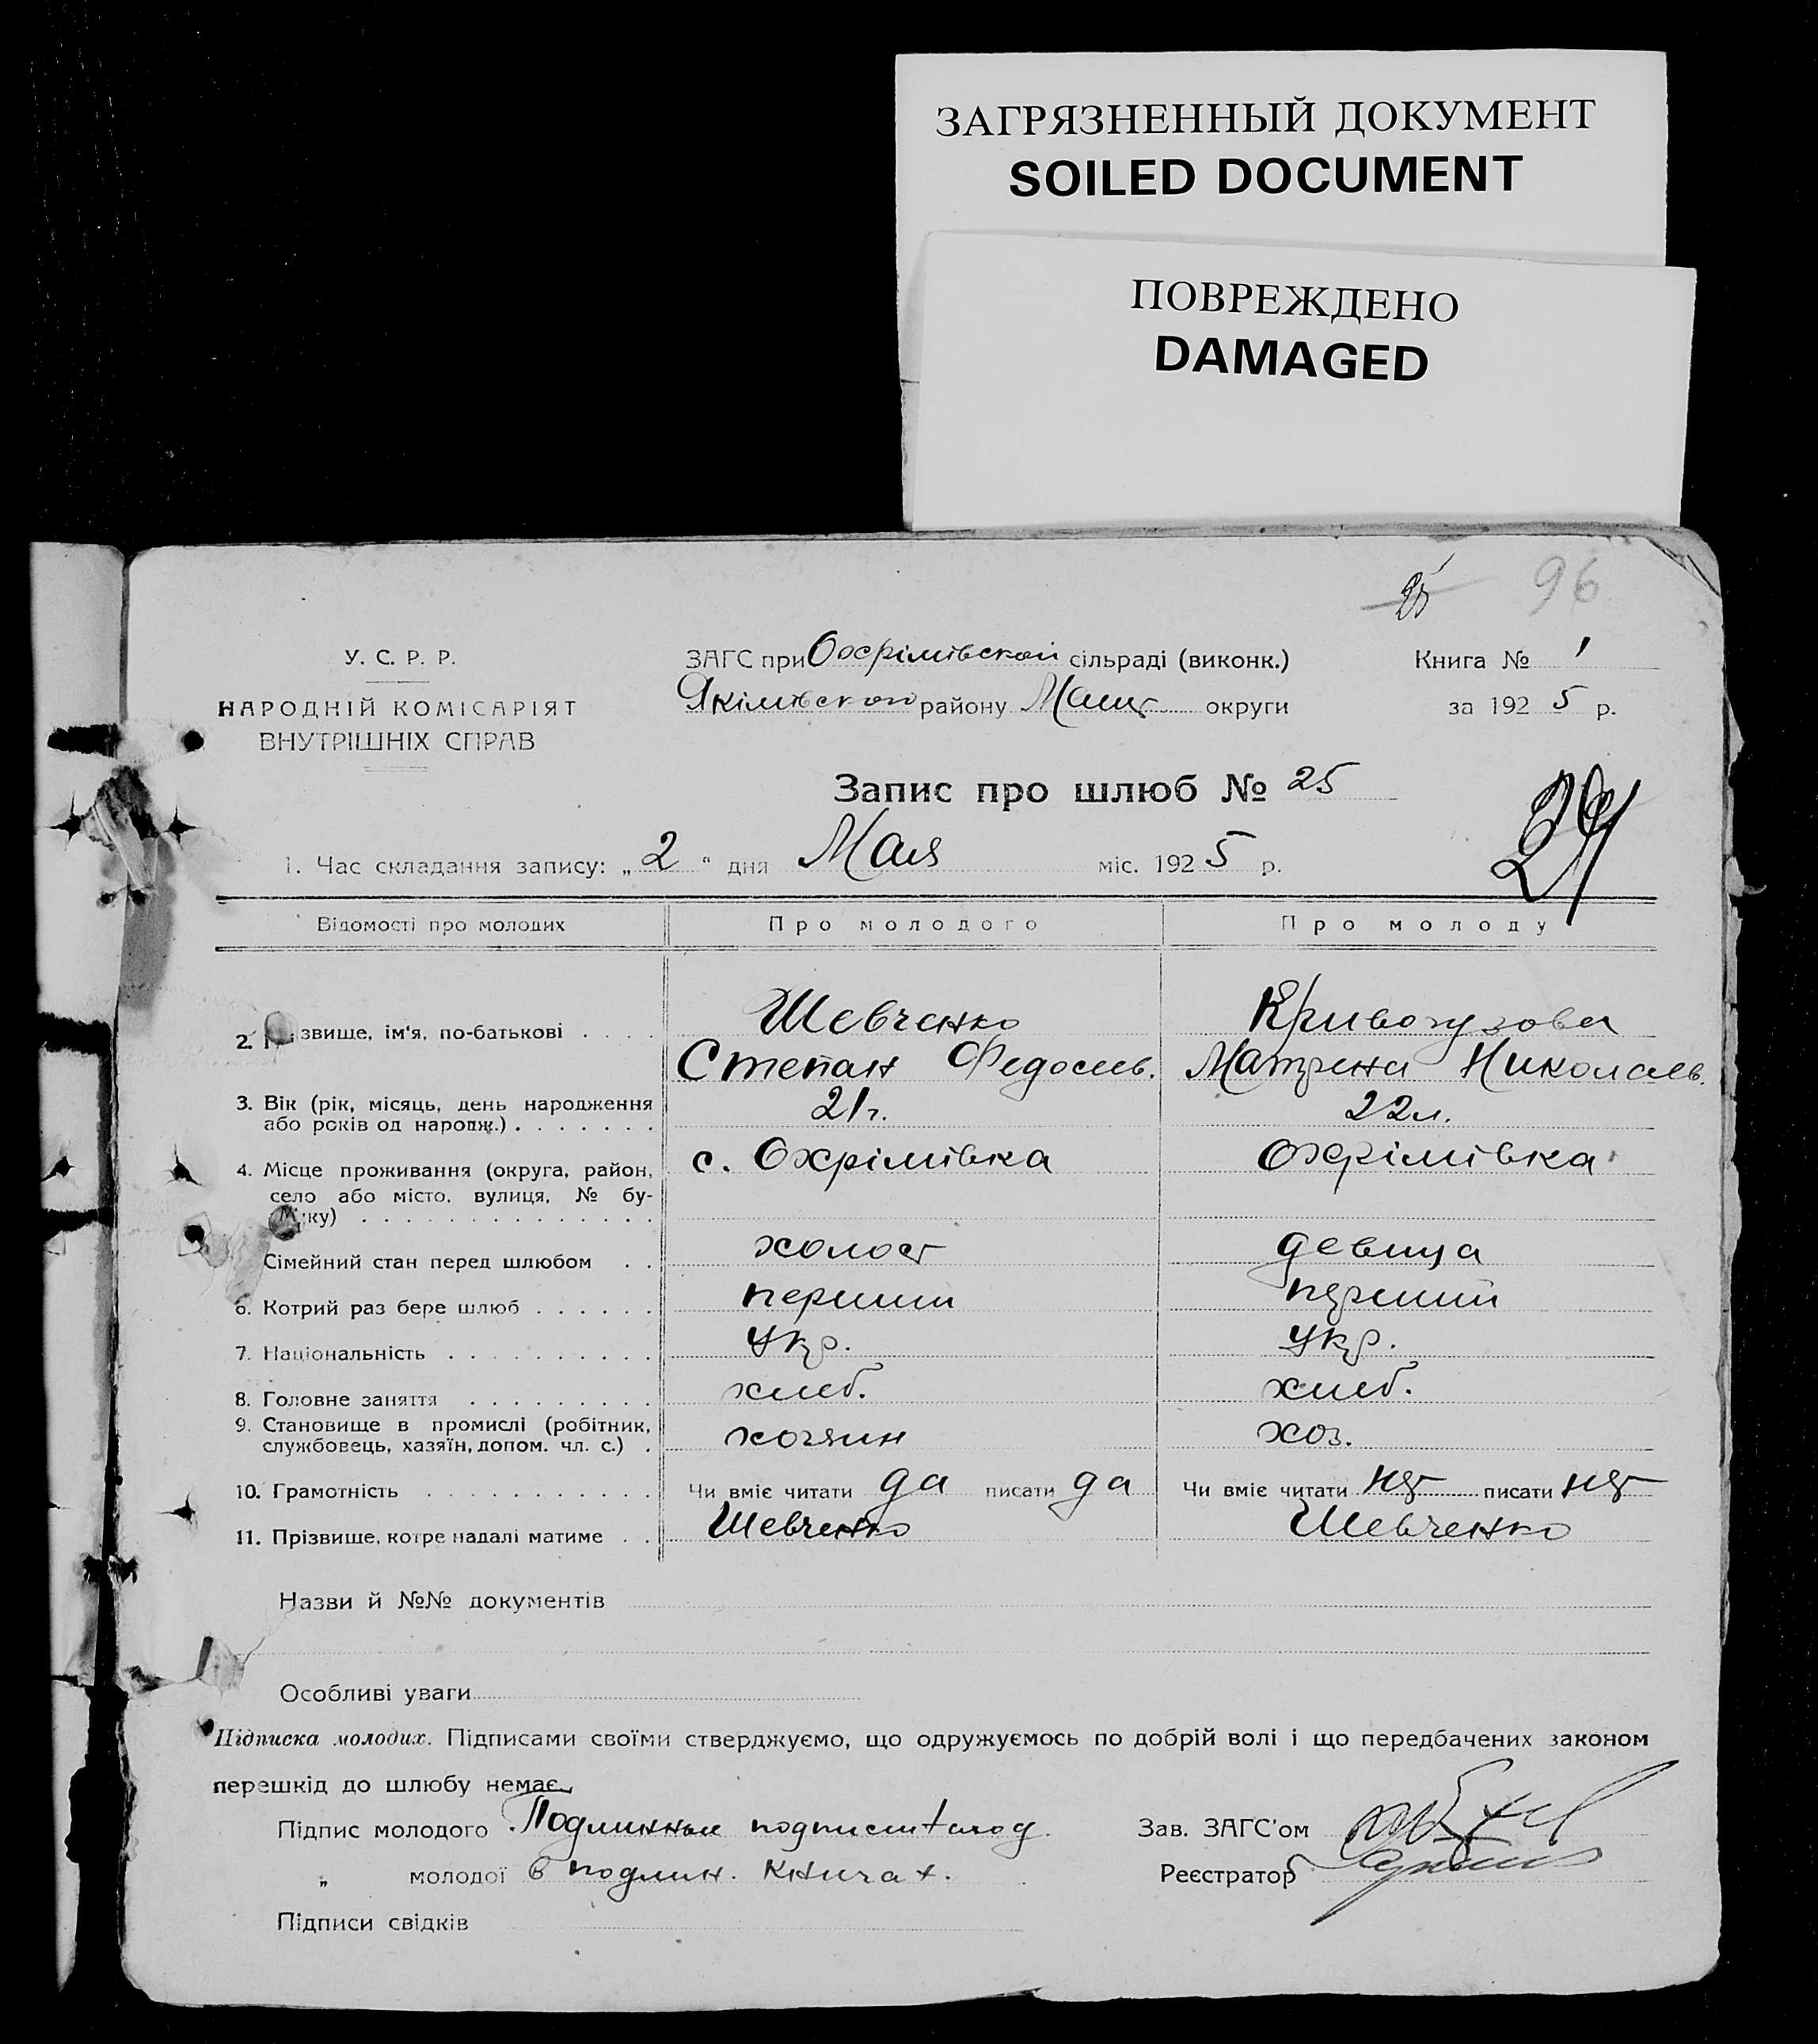 ЗАГРЯЗНЕННЫЙ ДОКУМЕНТ
SOILED DOCUMENT
ПОВРЕЖДЕНО
DAMAGED
25 96
У. С. Р. Р.
НАРОДНІЙ КОМІСАРІЯТ
ВНУТРІШНІХ СПРАВ
ЗАГС при Охрімівской сільраді (виконк.)
Якімівского району Меліт округи
Книга № 1
за 1925 р.
Запис про шлюб № 25
1. Час складання запису: „ 2 “ дня Мая міс. 1925 р.
Відомості про молодих Про молодого Про молоду
2. звище, ім'я, по-батькові . . . . Шевченко Кривогузова
Степан Федосеев. Матрена Николаев.
3. Вік (рік, місяць, день народження
або років од народж.) . . . . . . . 21 г. 22 л.
4. Місце проживання (округа, район, с. Охрімівка Охрімівка
село або місто, вулиця, № бу-
нку) . . . . . . . . . . . . . .
Сімейний стан перед шлюбом . . холост девица
6. Котрий раз бере шлюб . . . . . . перший перший
7. Національність . . . . . . . . . . Укр. Укр.
8. Головне заняття . . . . . . . . . хлеб. хлеб.
9. Становище в промислі (робітник,
службовець, хазяїн, допом. чл. с.) . хозяин хоз.
10. Грамотність . . . . . . . . . . . Чи вміє читати да писати да Чи вміє читати нет писати нет
11. Прізвище, котре надалі матиме . . Шевченко Шевченко
Назви й №№ документів
Особливі уваги
Підписка молодих. Підписами своїми стверджуємо, що одружуємось по добрій волі і що передбачених законом
перешкід до шлюбу немає.
Підпис молодого Подлинные подписи Зав. ЗАГС'ом
„ молодої в подлин. книгах. Реєстратор
Підписи свідків